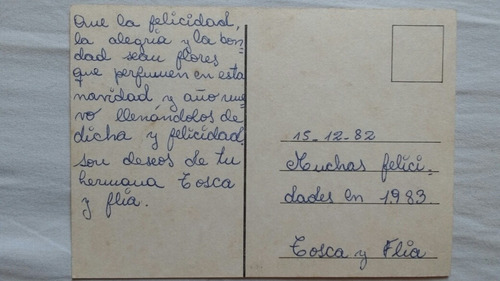 Que la felicidad,
la alegría y la bon-
dad sean flores
que perfumen en esta
navidad y año nue-
vo llenándolos de
dicha y felicidad
son deseos de tu
hermana Tosca
y flia.
15-12-82
Muchas felici-
dades en 1983.
Tosca y Flia